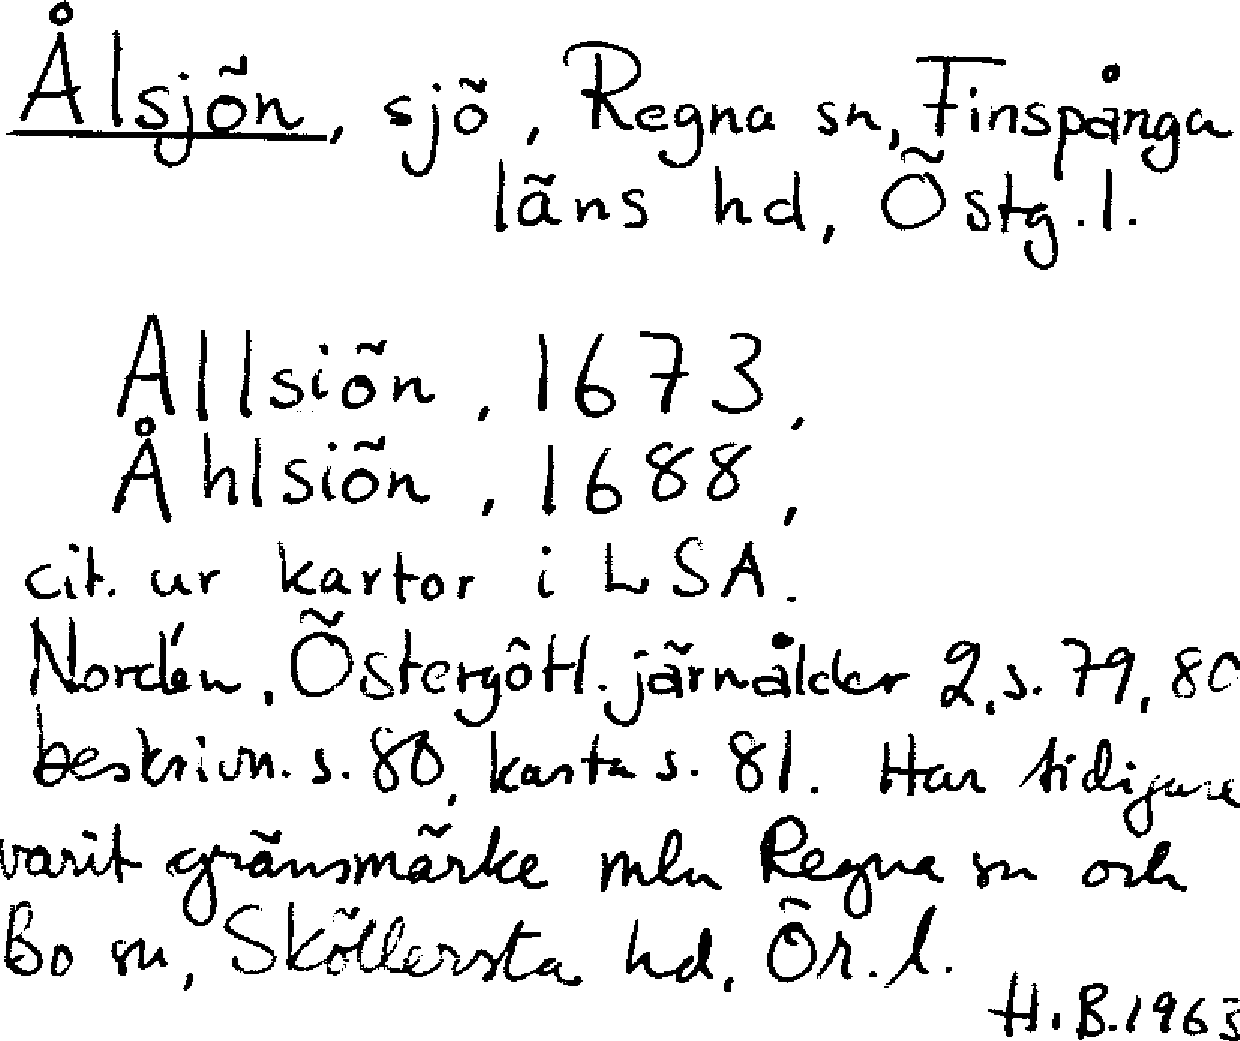 Ålsjön, sjö, Regna sn, Finspånga
läns hd, Östg. l.
Allsiön, 1673,
Åhlsiön, 1688,
cit. ur kartor i LSA.
Nordén, Östergötl. järnålder 2, s. 79, 80
beskrivn. s. 80, karta s. 81. Har tidigare
varit gränsmärke mln Regna sn och
Bo sn, Sköllersta hd, Ör. l.
H. B. 1963